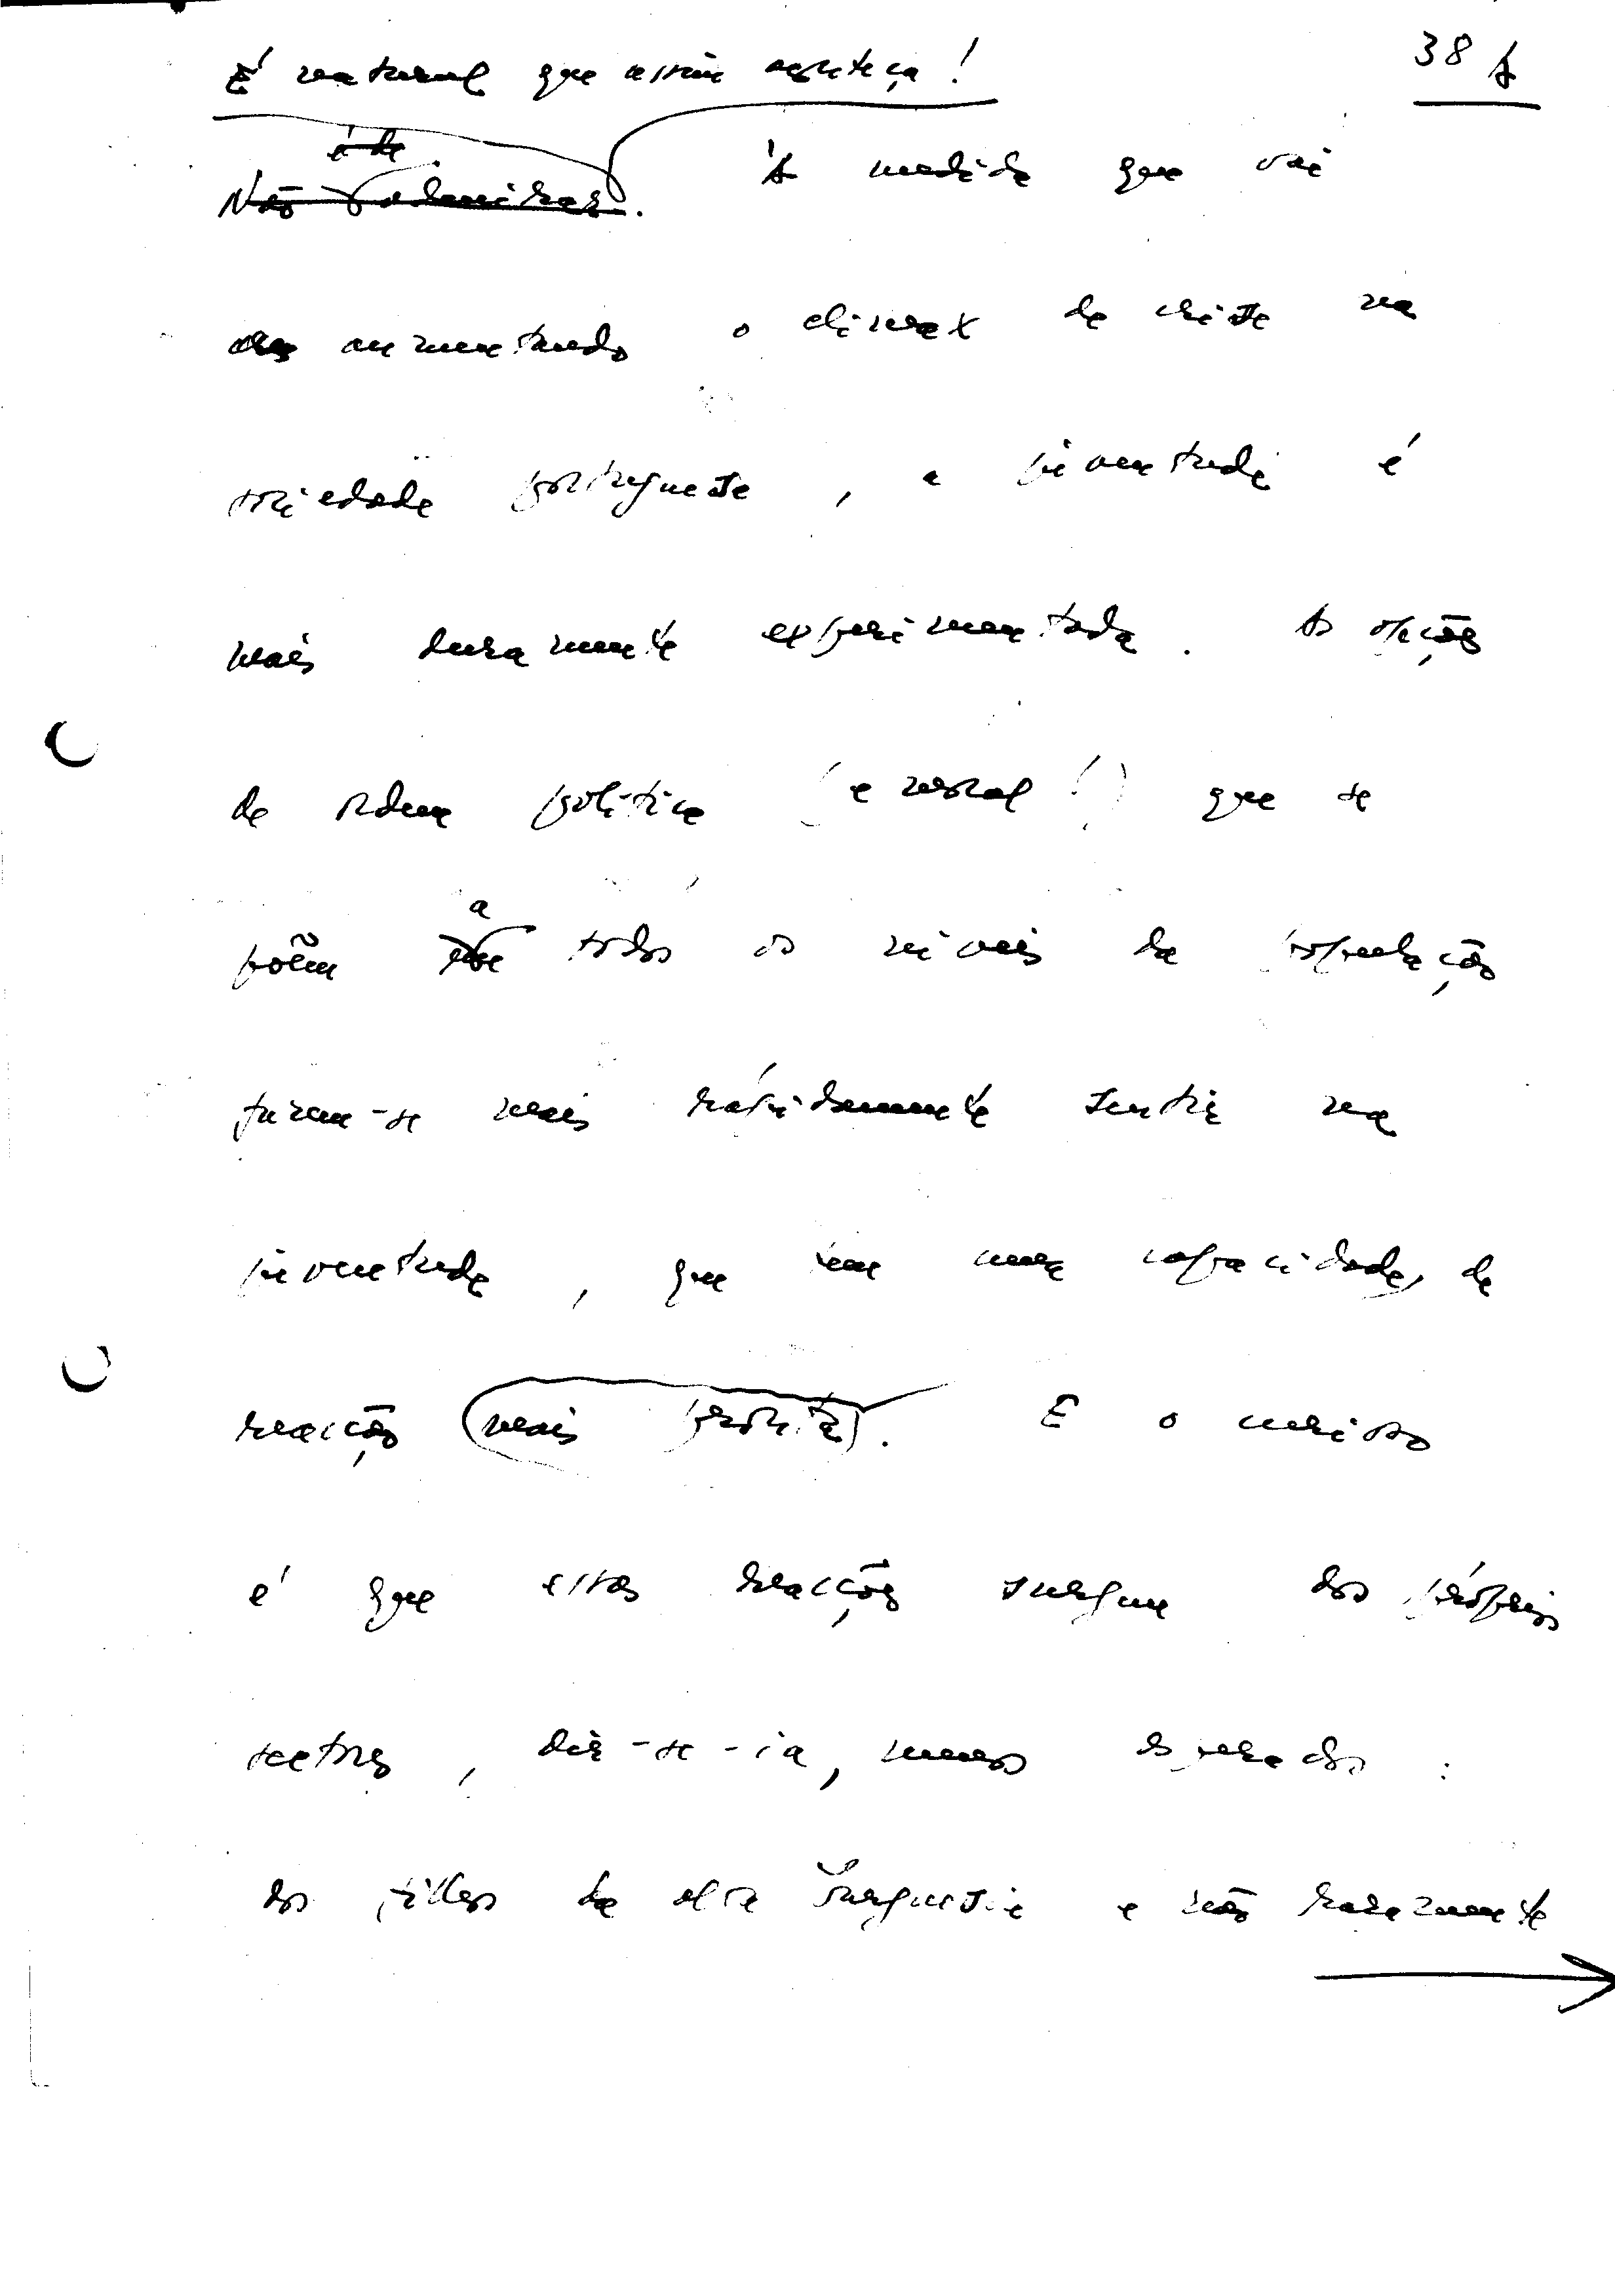 É natural que assim aconteça!
38 A
é de
Não admirar. À medida que vai
aumentando o climax de crise na
sociedade portuguesa, a juventude é
mais duramente experimentada. As opções
de ordem política (e moral!) que se
a
põem todos os níveis da população
fazem-se mais rápidamente sentir na
juventude, que tem uma capacidade de
reacção mais pronta. E o curioso
é que essas reacções surgem dos próprios
sectores, dir-se-ia, menos esperados:
dos filhos da alta burguesia e não raramente